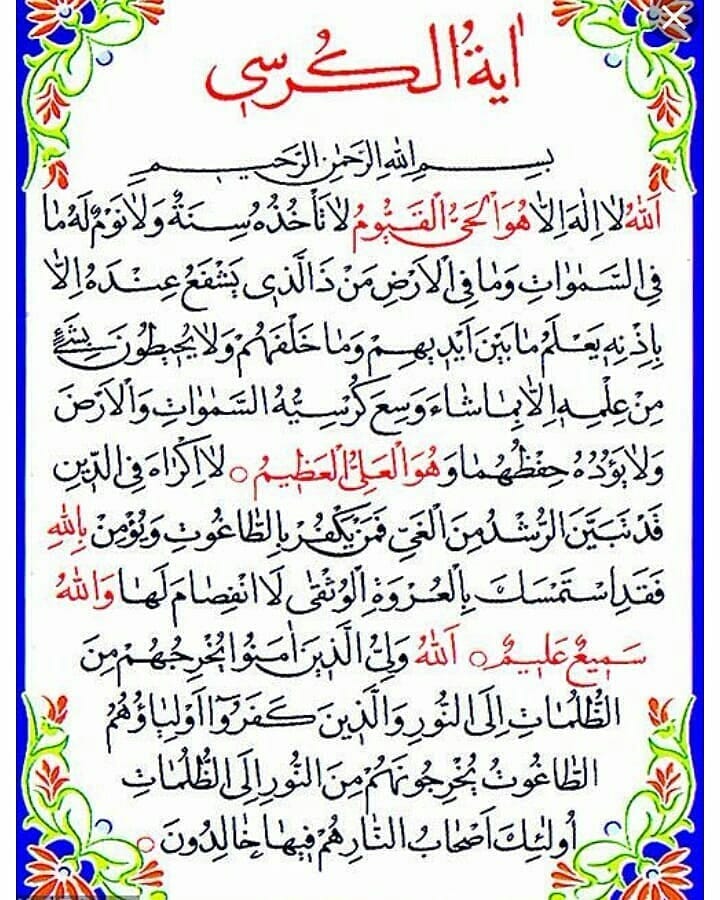 اٰیةُ الکُرسي
بِسْمِ اللهِ الرَّحْمٰنِ الرَّحيمِ
اَللهُ لَا اِلٰهَ اِلَّا هُوَ الْحَيُّ الْقَيُّومُ لَا تَأْخُذُهُ سِنَةٌ وَلَا نَوْمٌ لَهُ مَا
فِي السَّمٰوَاتِ وَمَا فِي الْاَرْضِ مَنْ ذَا الَّذي يَشْفَعُ عِنْدَهُ اِلَّا
بِاِذْنِهِ يَعْلَمُ مَا بَيْنَ اَيْديهِمْ وَمَا خَلْفَهُمْ وَلَا يُحيطُونَ بِشَيْءٍ
مِنْ عِلْمِهِ اِلَّا بِمَا شَاءَ وَسِعَ كُرْسِيُّهُ السَّمٰوَاتِ وَالْاَرْضَ
وَلَا يَؤُدُهُ حِفْظُهُمَا وَهُوَ الْعَلِيُّ الْعَظيمُ ○ لَا اِكْرَاهَ فِي الدّينِ
قَدْ تَبَيَّنَ الرُّشْدُ مِنَ الْغَيِّ فَمَنْ يَكْفُرْ بِالطَّاغُوتِ وَيُؤْمِنْ بِاللهِ
فَقَدِ اسْتَمْسَكَ بِالْعُرْوَةِ الْوُثْقٰى لَا انْفِصَامَ لَهَا وَاللهُ
سَميعٌ عَليمٌ ○ اَللهُ وَلِيُّ الَّذينَ اٰمَنُوا يُخْرِجُهُمْ مِنَ
الظُّلُمَاتِ اِلَى النُّورِ وَالَّذينَ كَفَرُوٓا اَوْلِيَاؤُهُمُ
الطَّاغُوتُ يُخْرِجُونَهُمْ مِنَ النُّورِ اِلَى الظُّلُمَاتِ
اُولٰئِكَ اَصْحَابُ النَّارِ هُمْ فيهَا خَالِدُونَ ○